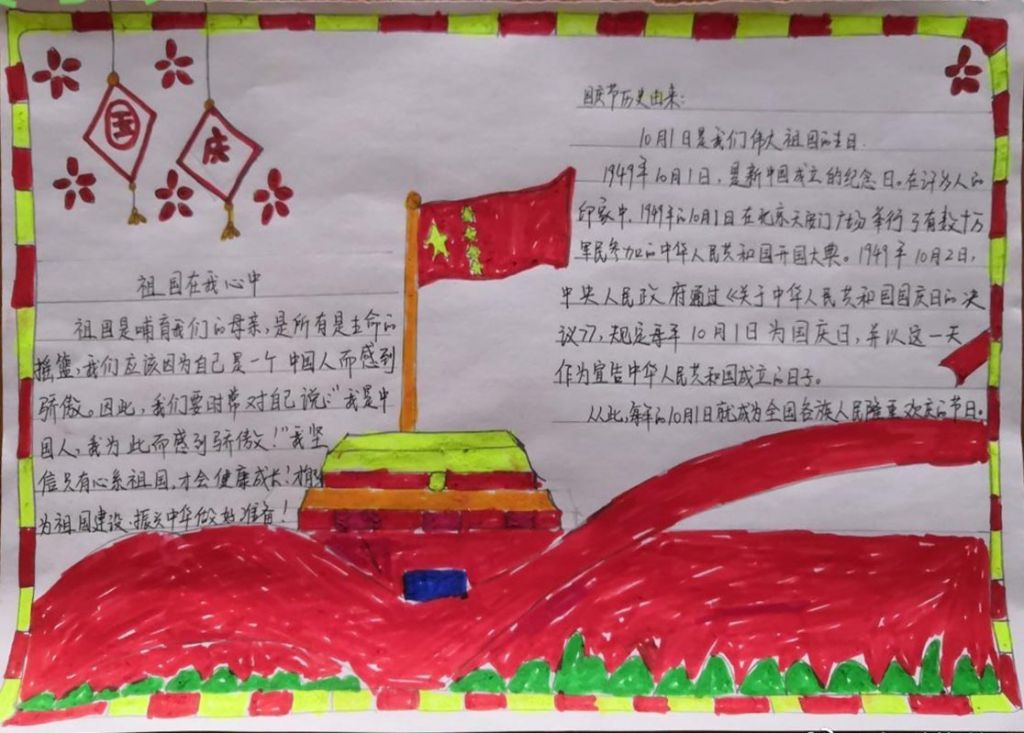 国
庆
祖国在我心中
祖国是哺育我们的母亲,是所有是生命的
摇篮,我们应该因为自己是一个中国人而感到
骄傲。因此,我们要时常对自己说:“我是中
国人,我为此而感到骄傲!”我坚
信只有心系祖国,才会健康成长!才
为祖国建设、振兴中华做好准备!
国庆节历史由来:
10月1日是我们伟大祖国的生日.
1949年10月1日,是新中国成立的纪念日。在许多人的
印象中,1949年的10月1日在北京天安门广场举行了有数十万
军民参加的中华人民共和国开国大典。1949年10月2日,
中央人民政府通过《关于中华人民共和国国庆日的决
议》,规定每年10月1日为国庆日,并以这一天
作为宣告中华人民共和国成立的日子。
从此,每年的10月1日就成为全国各族人民隆重欢庆的节日。